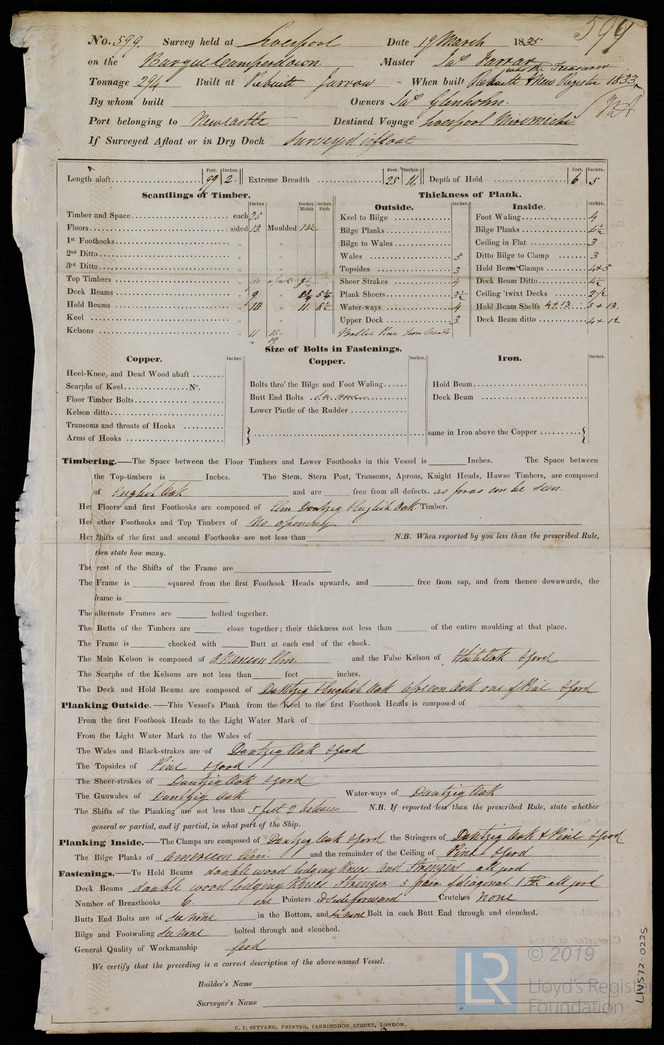 No. 599 Survey held at Liverpool Date 19 March 1835
599
on the Barque Camperdown Master Jas Farrar
Tonnage 294 Built at Rebuilt Jarrow When built Rebuilt & New Register 1833
By whom built Owners Jas Glenholm
Port belonging to Newcastle Destined Voyage Liverpool Miramichi
If Surveyed Afloat or in Dry Dock Surveyed afloat
Feet. Inches. Feet. Inches. Feet. Inches.
Length aloft 99 2 Extreme Breadth 25 11 Depth of Hold 6 5
Scantlings of Timber. Thickness of Plank.
Inches Inches Middle Inches Ends Outside. Inches Inside. Inches
Timber and Space each 25 Keel to Bilge Foot Waling 4
Floors sided 13 Moulded 12½ Bilge Planks Bilge Planks 4½
1st Foothooks Bilge to Wales Ceiling in Flat 3
2nd Ditto Wales 5 Ditto Bilge to Clamp 3
3rd Ditto Topsides 3 Hold Beam Clamps 4 & 5
Top Timbers Sheer Strakes 4 Deck Beam Ditto 4½
Deck Beams 9 Plank Sheers 3½ Ceiling 'twixt Decks 2½
Hold Beams 10 11 8½ Water-ways 4 Hold Beam Shelfs
Keel Upper Deck 3 Deck Beam ditto
Kelsons 11 15
Size of Bolts in Fastenings.
Copper. Inches Copper. Inches Iron. Inches
Heel-Knee, and Dead Wood abaft
Scarphs of Keel No. Bolts thro' the Bilge and Foot Waling Hold Beam
Floor Timber Bolts Butt End Bolts Deck Beam
Kelson ditto Lower Pintle of the Rudder
Transoms and throats of Hooks
Arms of Hooks same in Iron above the Copper
Timbering.—The Space between the Floor Timbers and Lower Foothooks in this Vessel is Inches. The Space between
the Top-timbers is Inches. The Stem, Stern Post, Transoms, Aprons, Knight Heads, Hawse Timbers, are composed
of English Oak and are free from all defects. as far as can be seen
Her Floors and first Foothooks are composed of Elm Dantzig & English Oak Timber.
Her other Foothooks and Top Timbers of No opening
Her Shifts of the first and second Foothooks are not less than N.B. When reported by you less than the prescribed Rule,
then state how many.
The rest of the Shifts of the Frame are
The Frame is squared from the first Foothook Heads upwards, and free from sap, and from thence downwards, the
frame is
The alternate Frames are bolted together.
The Butts of the Timbers are close together; their thickness not less than of the entire moulding at that place.
The Frame is chocked with Butt at each end of the chock.
The Main Kelson is composed of American Elm and the False Kelson of White Oak & good
The Scarphs of the Kelsons are not less than feet inches.
The Deck and Hold Beams are composed of Dantzig & English Oak African Oak one of Pine & good
Planking Outside.—This Vessel's Plank from the Keel to the first Foothook Heads is composed of
From the first Foothook Heads to the Light Water Mark of
From the Light Water Mark to the Wales of
The Wales and Black-strakes are of Dantzig Oak & good
The Topsides of Pine & good
The Sheer-strakes of Dantzig Oak & good
The Gunwales of Dantzig Oak Water-ways of Dantzig Oak
The Shifts of the Planking are not less than 5 feet 2 between N.B. If reported less than the prescribed Rule, state whether
general or partial, and if partial, in what part of the Ship.
Planking Inside.—The Clamps are composed of Dantzig Oak & good the Stringers of Dantzig Oak & Pine & good
The Bilge Planks of American Elm and the remainder of the Ceiling of Pine & good
Fastenings.—To Hold Beams double wood lodging knees and Stringers all good
Deck Beams double wood lodging Knees Stringer 5 pair of diagonal all good
Number of Breasthooks 6 one Pointers Crutches None
Butts End Bolts are of See none in the Bottom, and Bolt in each Butt End through and clenched.
Bilge and Footwaling See none bolted through and clenched.
General Quality of Workmanship good
We certify that the preceding is a correct description of the above-named Vessel.
Builder's Name
Surveyor's Name
C. F. SEYFANG, PRINTER, FARRINGDON STREET, LONDON.
LIV572-0225
LR © 2019
Lloyd's Register
Foundation